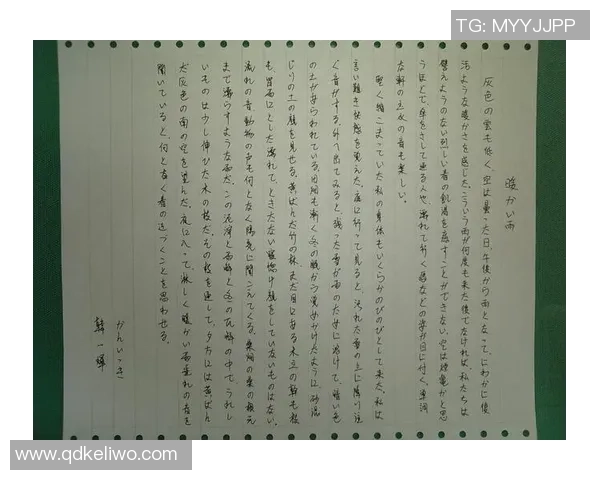 暖かい雨
灰色の雲も低く、空は曇った日、午後から雨となって、にわかに復
活ような暖かさを感じた。こういう雨が何度も来た後でなければ、私たちは
譬えようのない烈しい春の飢渇を癒すことができない。空は煙かと思
うほどで、傘をさして通る人や、濡れて行く馬などの姿が目に付く。単調
な軒の玉水の音も楽しい。
堅く縮こまっていた私の身体もいくらかのびのびとして来た。私は
言い難き快感を覚えた。庭に行って見ると、汚れた雪の上に降り注
ぐ音がする。外へ出てみると、残った雪が雨のために溶けて、暗い色
の土があらわれている。田畑も漸く冬の眠から覚めかけたように、砂混
じりの土の顔を見せる。黄ばんだ竹の林、まだ目にある木立の幹も枝
も、皆雨にとし濡れて、ときたない寝惚け顔をしていないものはない。
流れの音、動物の声も何となく陽気に聞こえてくる。桑畑の桑の根元
まで濡らすような雨だ。この泥濘と雪解と冬の瓦解の中で、うれし
いものは少し伸びた木の枝だ。その枝を通して、夕方には黄ばん
だ灰色の南の空を望んだ。夜に入って、淋しく暖かい雨垂れの音を
聞いていると、何と なく春の近づくことを思わせる。
かんいっき
韓一
TG: MYYJJPP
www.qdkeliwo.com